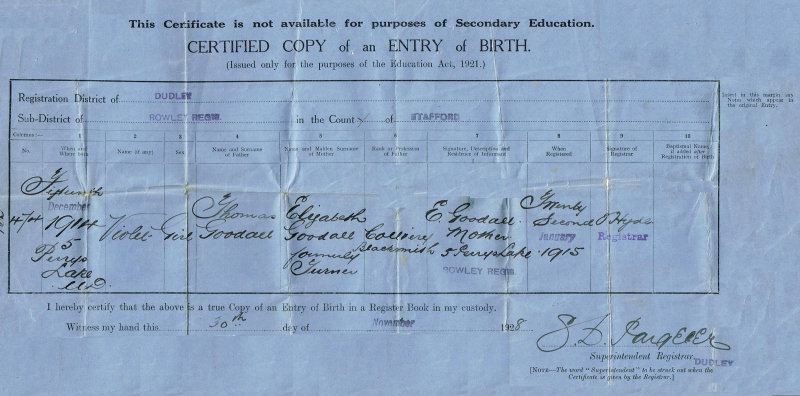 This Cerificate is not available for purposes of Secondary Education.
CERTIFIED COPY of an ENTRY of BIRTH.
(Issued only for the purposes of the Education Act, 1921.)
Insert in this margin any Notes which appear in the original Entry.
Registration District of DUDLEY
Sub-District of ROWLEY REGIS. in the County of STAFFORD
Columns:— 1 2 3 4 5 6 7 8 9 10
No. When and Where born Name (if any) Sex Name and Surname of Father Name and Maiden Surname of Mother Rank or Profession of Father Signature, Description and Residence of Informant When Registered Signature of Registrar Baptismal Name if added after Registration of Birth
Fifteenth December 1914 5 Perrys Lake Violet Girl Thomas Goodall Elizabeth Goodall formerly Turner Colliery Blacksmith E. Goodall Mother 5 Perrys Lake ROWLEY REGIS. Twenty Second January 1915 Hyde Registrar
I hereby certify that the above is a true Copy of an Entry of Birth in a Register Book in my custody.
Witness my hand this 30th day of November 1928
Superintendent Registrar.
DUDLEY
[NOTE—The word "Superintendent" to be struck out when the Certificate is given by the Registrar.]